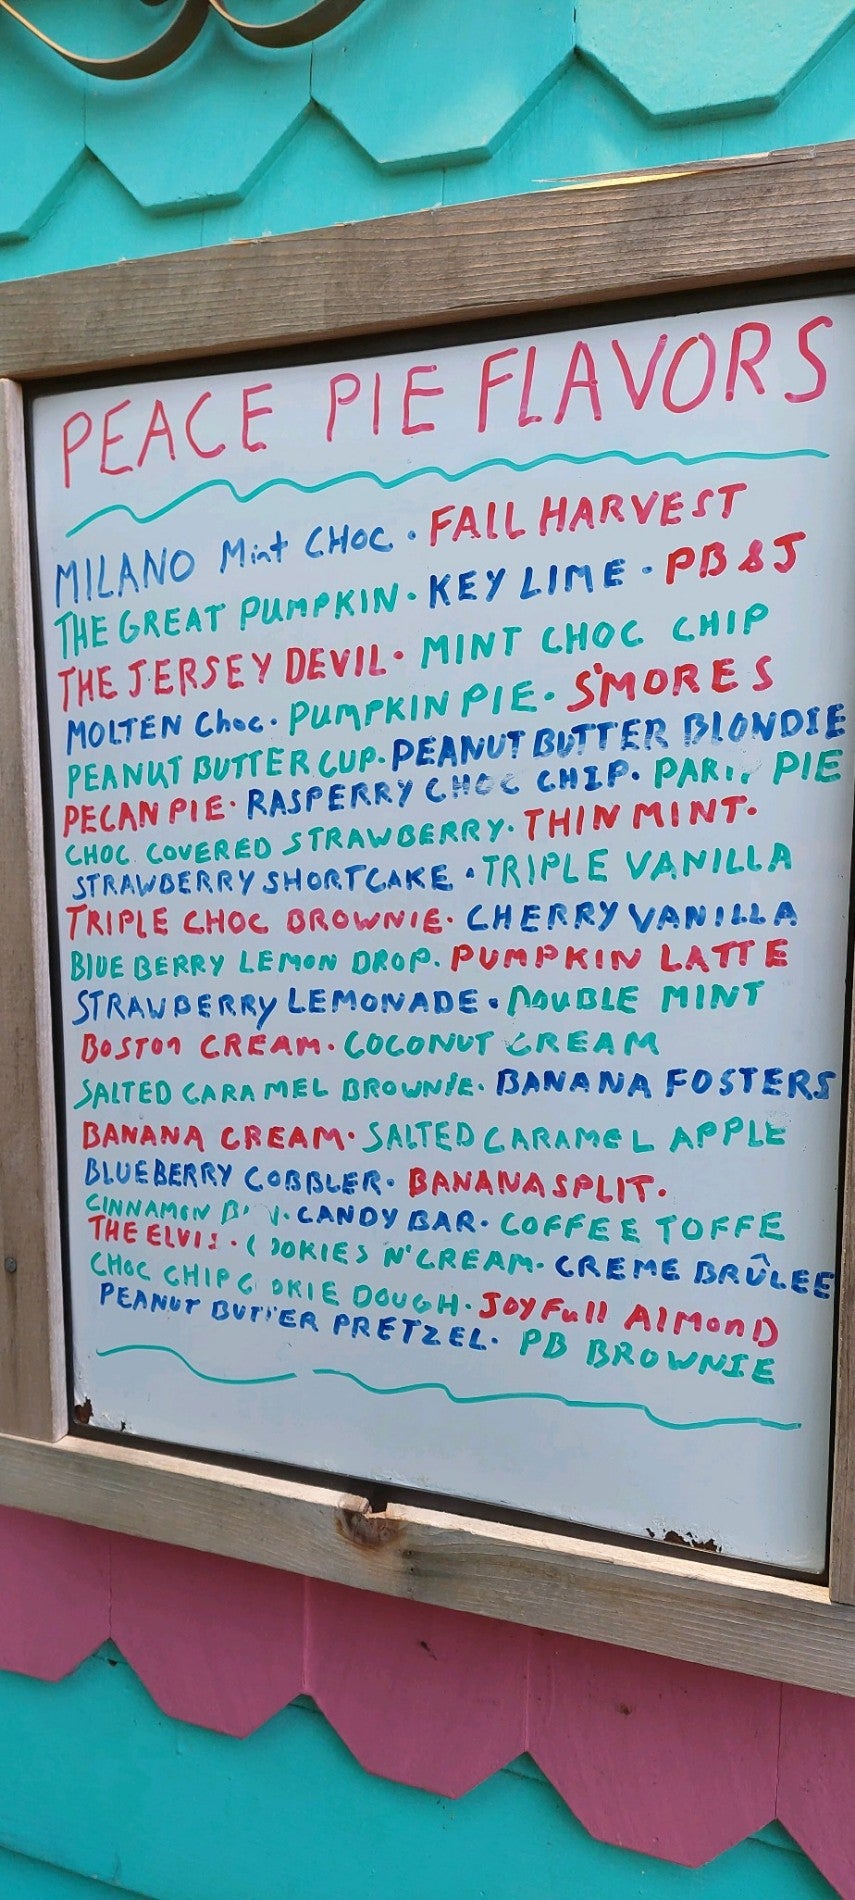 PEACE PIE FLAVORS
MILANO Mint CHOC · FALL HARVEST
THE GREAT PUMPKIN · KEY LIME · PB & J
THE JERSEY DEVIL · MINT CHOC CHIP
MOLTEN Choc · PUMPKIN PIE · S'MORES
PEANUT BUTTER CUP · PEANUT BUTTER BLONDIE
PECAN PIE · RASPERRY CHOC CHIP · PIE
CHOC COVERED STRAWBERRY · THIN MINT ·
STRAWBERRY SHORTCAKE · TRIPLE VANILLA
TRIPLE CHOC BROWNIE · CHERRY VANILLA
BLUEBERRY LEMON DROP · PUMPKIN LATTE
STRAWBERRY LEMONADE · DOUBLE MINT
BOSTON CREAM · COCONUT CREAM
SALTED CARAMEL BROWNIE · BANANA FOSTERS
BANANA CREAM · SALTED CARAMEL APPLE
BLUEBERRY COBBLER · BANANA SPLIT ·
CINNAMON · CANDY BAR · COFFEE TOFFE
THE ELVIS · COOKIES N' CREAM · CREME BRÛLEE
CHOC CHIP COOKIE DOUGH · JOYFUll AlMOND
PEANUT BUTTER PRETZEL · PB BROWNIE